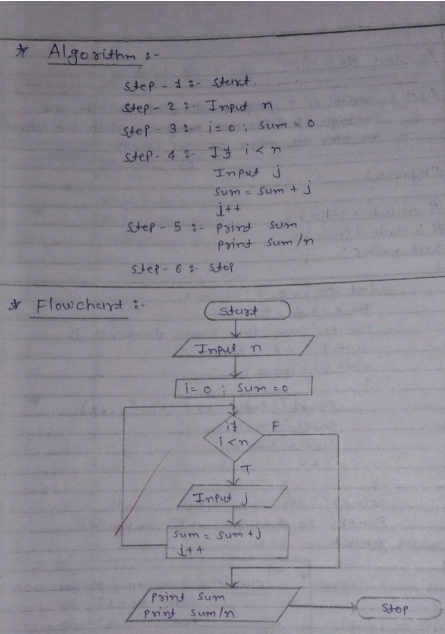 * Algorithm :-
Step - 1 :- Start.
Step - 2 :- Input n
Step - 3 :- i = 0 ; Sum = 0
Step - 4 :- If i < n
Input j
Sum = Sum + j
j++
Step - 5 :- Print Sum
Print Sum/n
Step - 6 :- Stop
* Flowchart :-
Start
Input n
i = 0 ; Sum = 0
if
i < n
F
T
Input j
Sum = Sum + j
j++
Print Sum
Print Sum/n
Stop